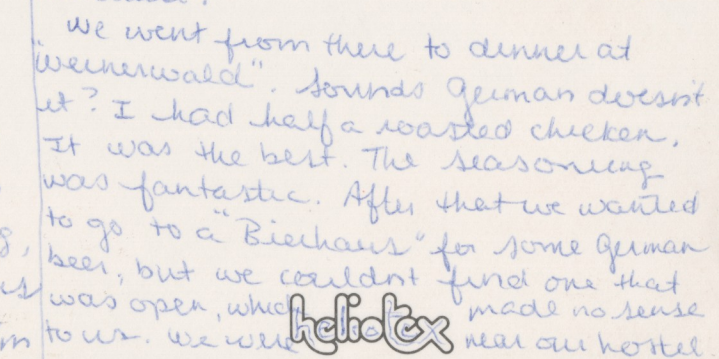 we went from there to dinner at
"weinerwald". Sounds German doesn't
it? I had half a roasted chicken.
It was the best. The seasoning
was fantastic. After that we wanted
to go to a "Bierhaus" for some German
beer, but we couldn't find one that
was open, which made no sense
to us. We were near our hostel
heliotex